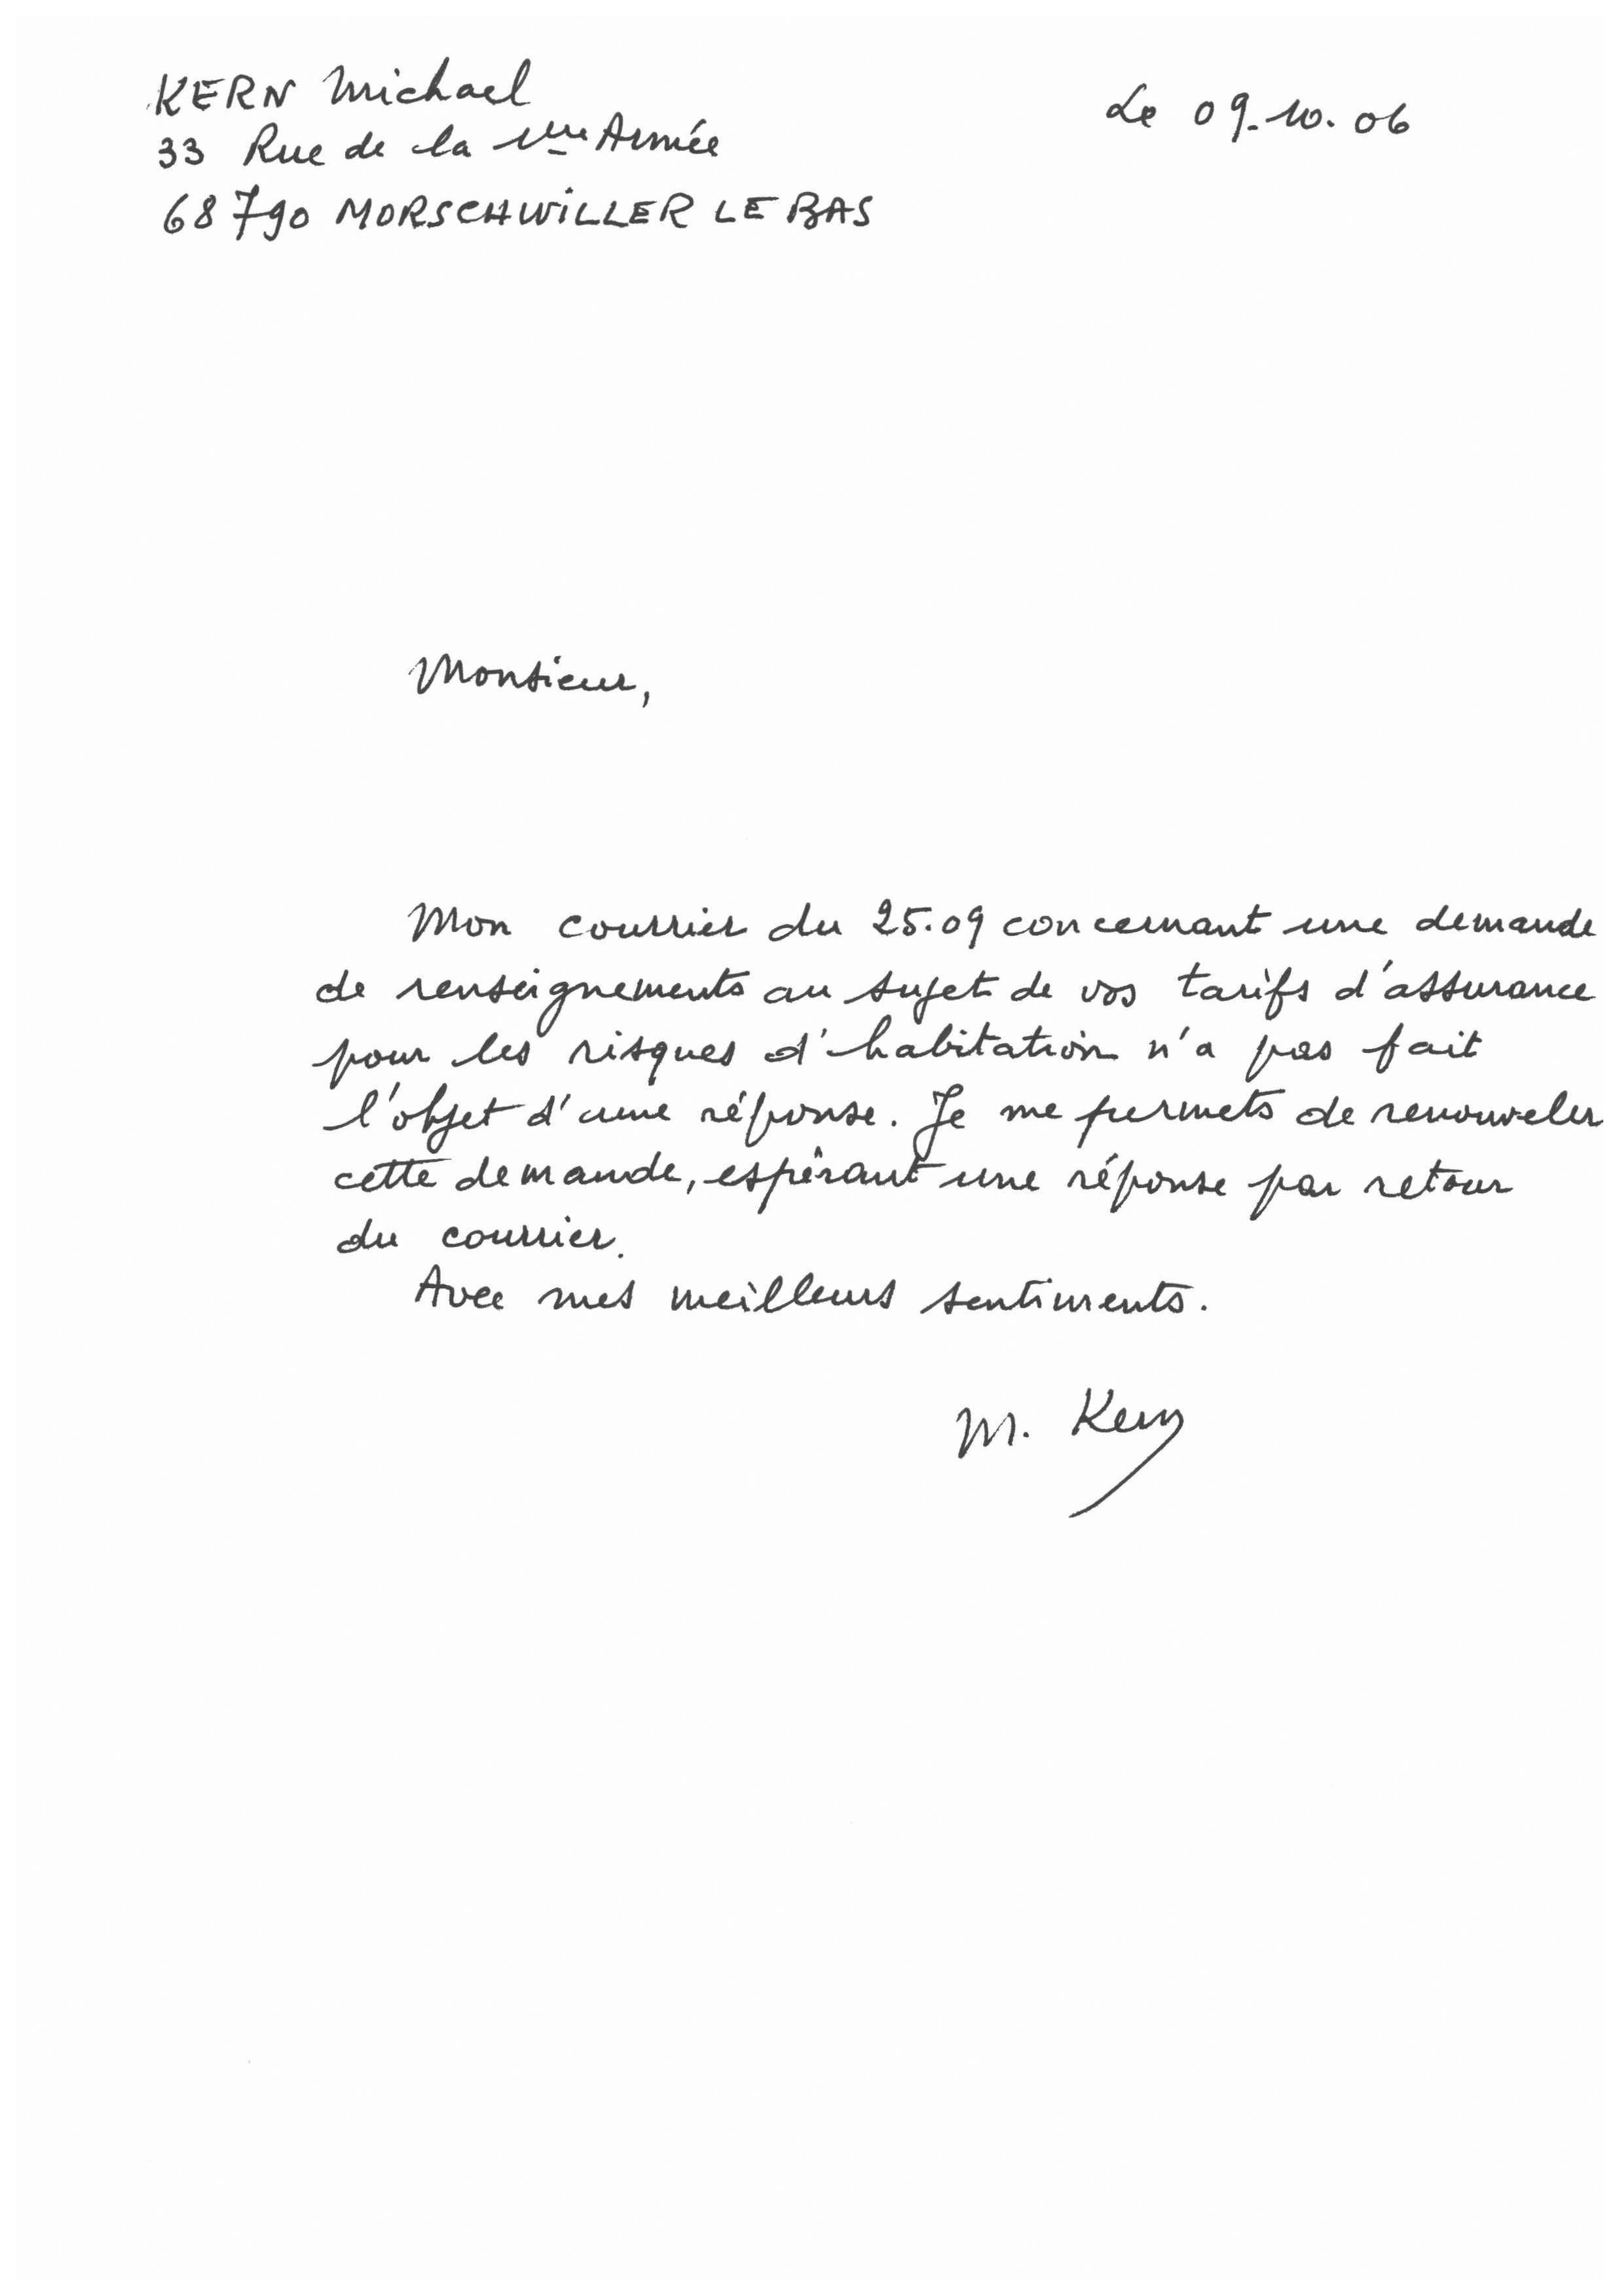 KERN Michael
Le 09.10.06
33 Rue de la 1ère Armée
68790 MORSCHWILLER LE BAS
Monsieur,
Mon courrier du 25.09 concernant une demande
de renseignements au sujet de vos tarifs d'assurance
pour les risques d'habitation n'a pas fait
l'objet d'une réponse. Je me permets de renouveler
cette demande, espérant une réponse par retour
du courrier.
Avec mes meilleurs sentiments.
M. Kern